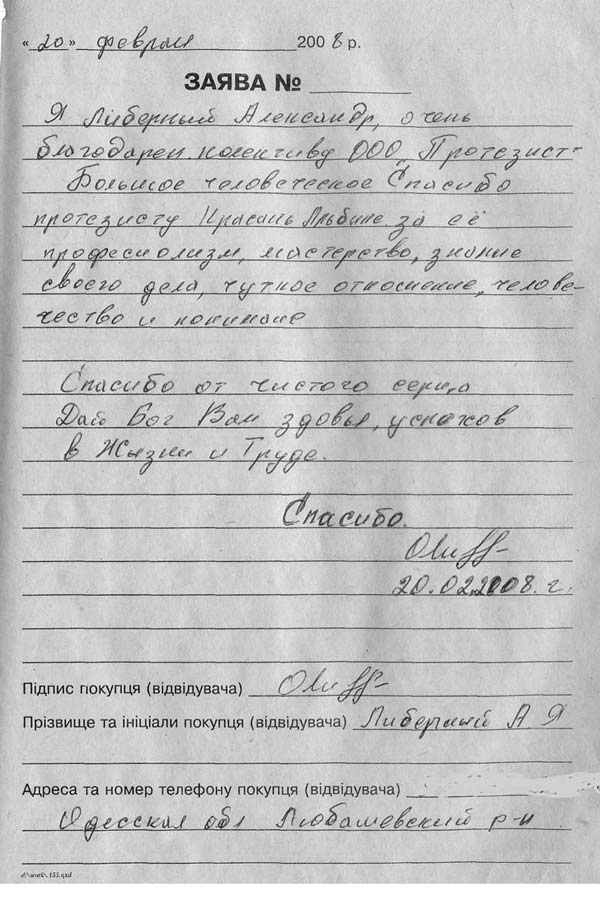 «20» февраля 2008 р.
ЗАЯВА № ________
Я Либерный Александр, очень
благодарен колективу ООО „Протезист"
Большое человеческое Спасибо
протезисту Альбине за её
професиолизм, мастерство, знание
своего дела, чуткое отношение, челове-
чество и понимание
Спасибо от чистого серца
Дай Бог Вам здовья, успехов
в Жизни и Труде.
Спасибо.
20.02.2008. г.
Підпис покупця (відвідувача)
Прізвище та ініціали покупця (відвідувача) Либерный А Я
Адреса та номер телефону покупця (відвідувача)
Одесская обл Любашевский р-н
d:\work\.155.qxd